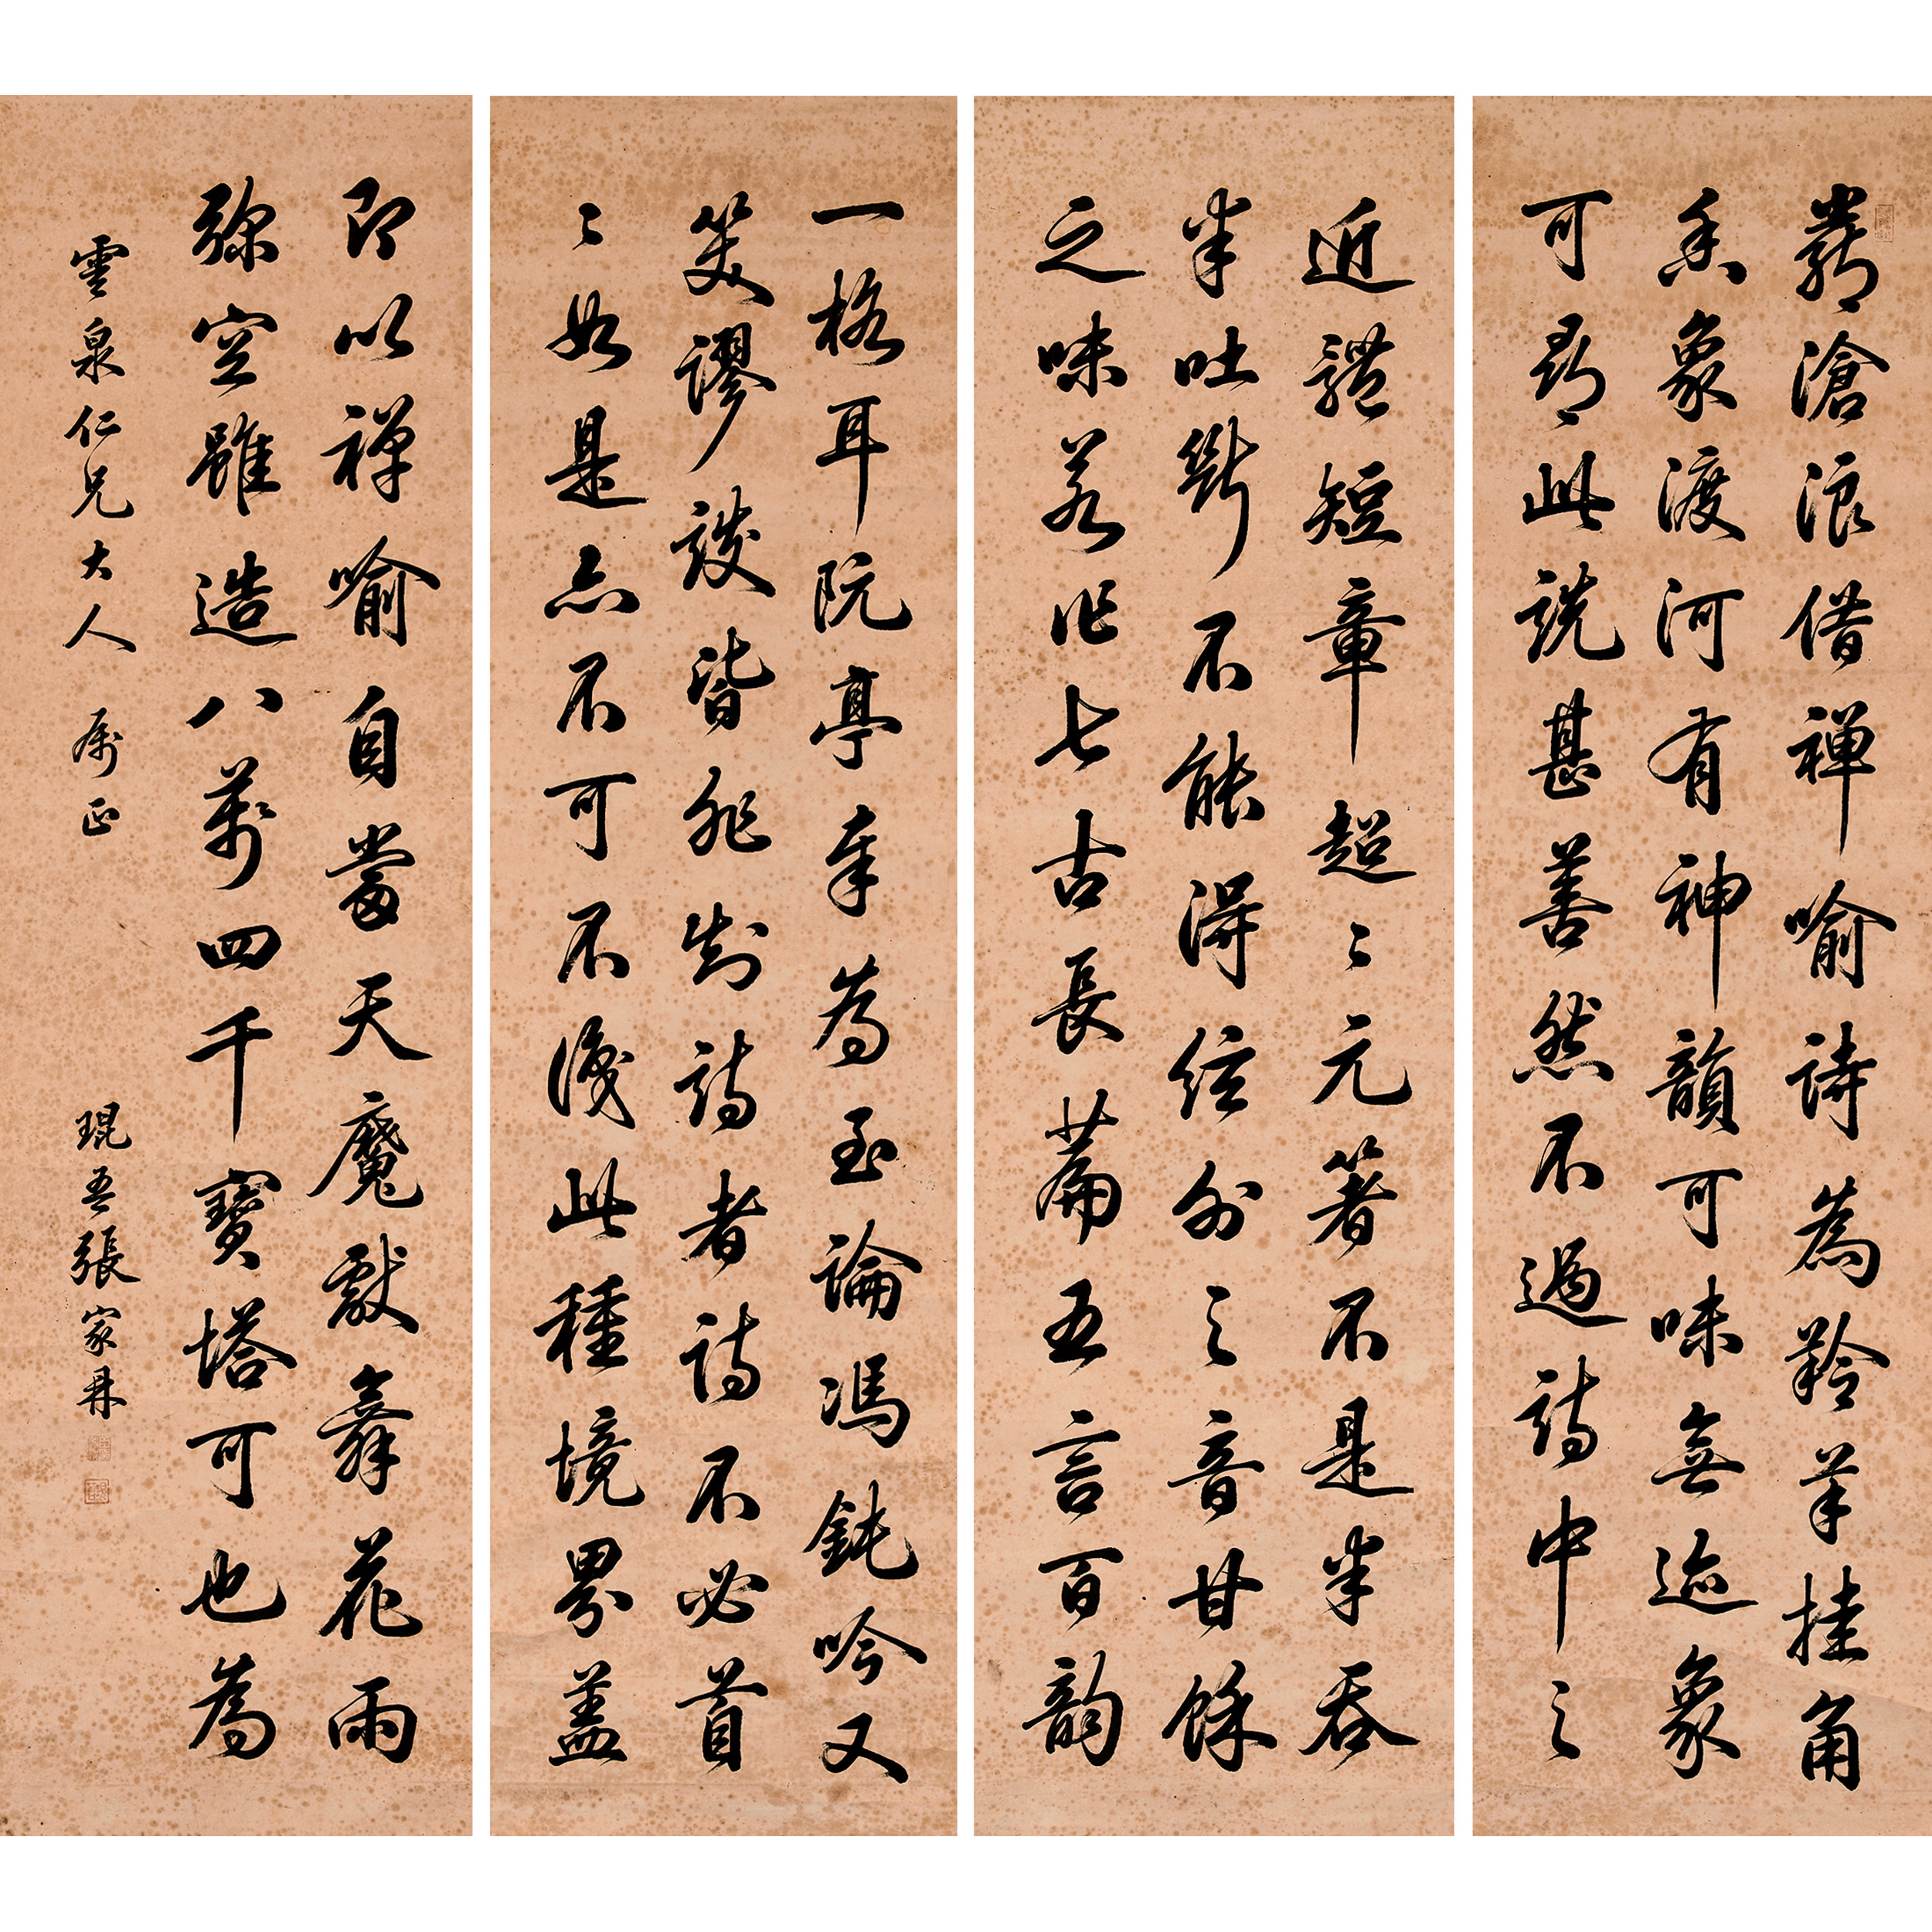 嚴滄浪借禪喻詩為羚羊挂角
香象渡河有神韻可味無迹象
可尋此説甚善然不過詩中之
一格耳阮亭奉為至論馮鈍吟又
笑謬談皆非知詩者詩不必首
〻如是亦不可不識此種境界蓋
近體短章超〻元箸不是半吞
半吐斷不能得絃外之音甘餘
之味若作七古長篇五言百韻
即以禪喻自當天魔獻舞花雨
彌空雖造八萬四千寶塔可也為
雲泉仁兄大人屬正
琨吾張家